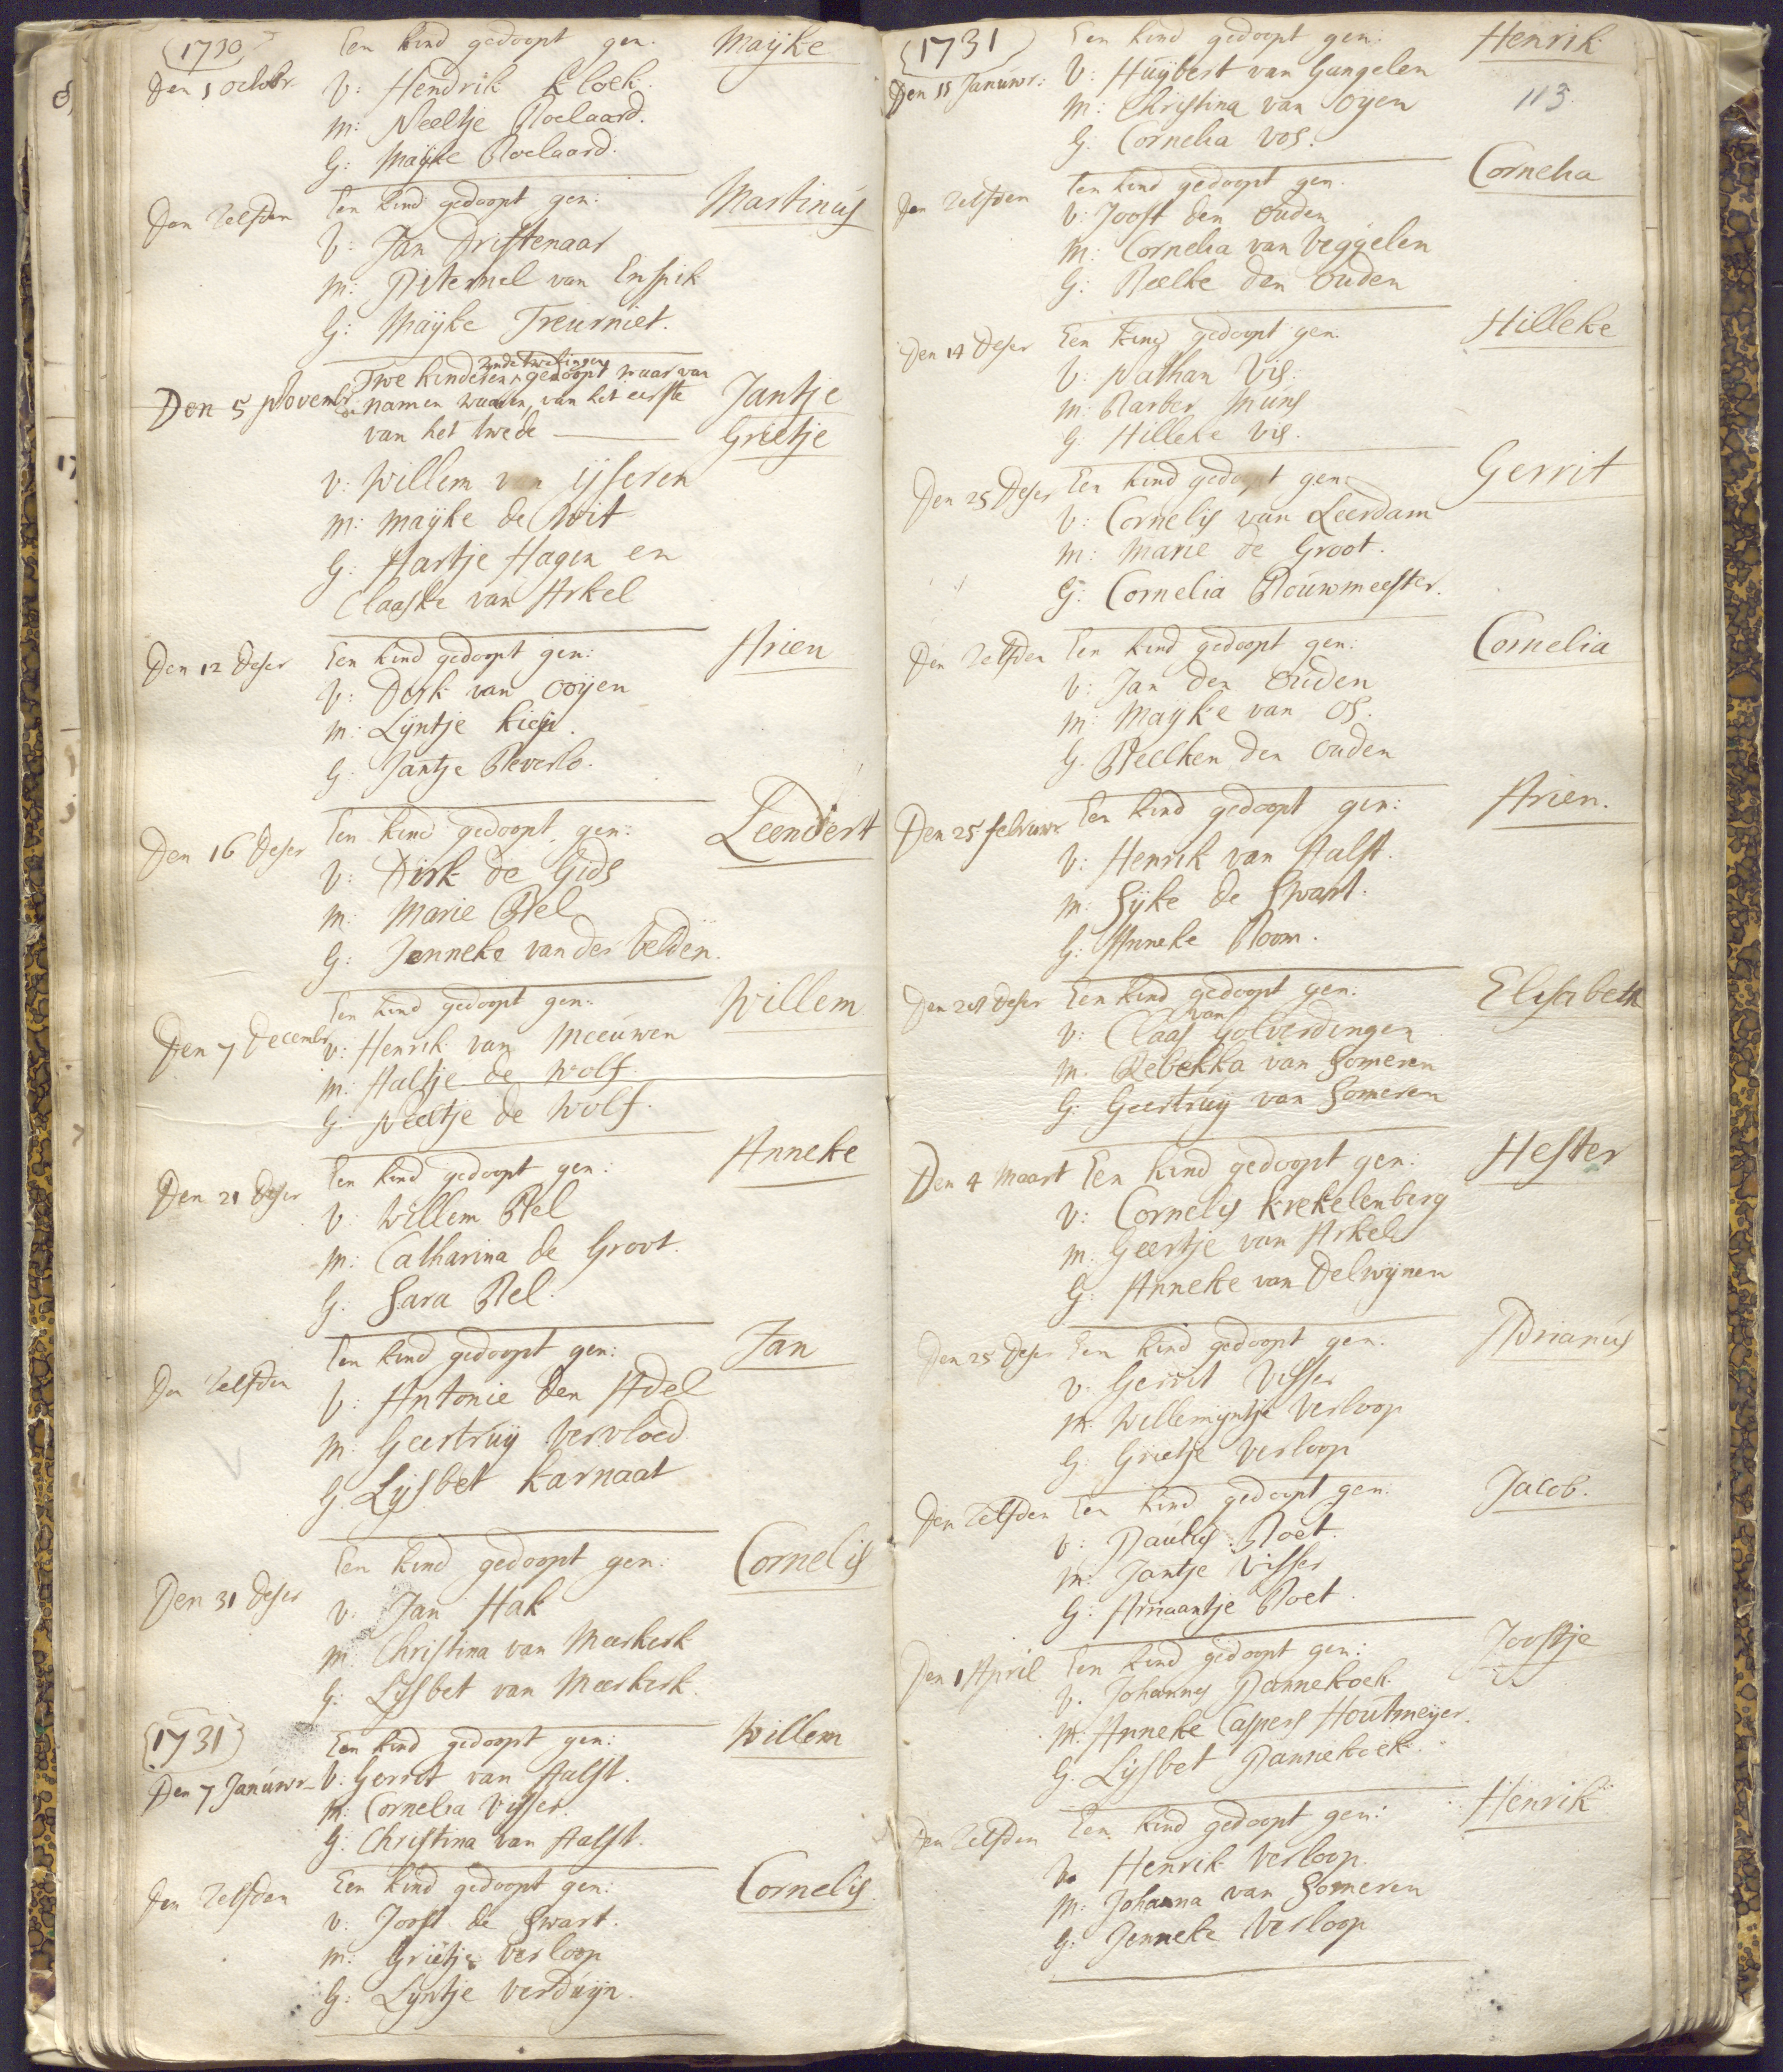 (1730)
Een kind gedoopt gen. Maÿke
Den 1 octobr.
V: Hendrik Kloek.
M: Neeltje Roelaard.
G: Maÿke Roelaard.
Den Zelfden Een kind gedoopt gen: Martinus
V: Jan Dristenaar
M: Piternel van Enspik
G: Maÿke Treurniet.
zynde twelingen
Twe kinderen gedoopt waar van
Den 5 Novembr. namen waaren, van het eerste Jantje
van het twede Grietje
V: Willem van ijsseren
M: Maÿke de Wit
G: Hartje Hagen en
Claaske van Arkel
Den 12 deser Een kind gedoopt gen: Arien
V: Dirk van ooÿen
M: Lÿntje
G: Jantje Beverlo.
Den 16 deser Een kind gedoopt gen: Leendert
V: Dirk de Gids
M: Marie Bel
G: Jenneke van der Velden.
Den 7 Decembr. Een kind gedoopt gen: Willem
V: Henrik van Meeuwen
M: Aaltje de Wolf.
G: Neeltje de Wolf.
Den 21 deser Een kind gedoopt gen: Anneke
V: Willem Bel
M: Catharina de Groot.
G: Sara Bel.
Den Zelfden Een kind gedoopt gen: Jan
V: Antonie den Adel
M: Geertruÿ Vervloed
G: Lÿsbet Karnaat
Den 31 deser Een kind gedoopt gen: Cornelis
V: Jan Hak
M: Christina van Meerkerk
G: Lÿsbet van Meerkerk.
(1731)
Een kind gedoopt gen: Willem
Den 7 Januwr. V: Gerrit van Aalst.
M: Cornelia Visser.
G: Christina van Aalst.
Den Zelfden Een kind gedoopt gen: Cornelis.
V: Joost de Swart.
M: Grietje Verloop
G: Lÿntje Verduijn.
(1731)
Een kind gedoopt gen: Henrik
Den 15 Januwr: V: Huÿbert van Gangelen
113.
M: Christina van Oÿen
G: Cornelia Vos.
Den Zelfden Een kind gedoopt gen. Cornelia
V: Joost den Ouden
M: Cornelia van Veggelen
G: Beelke den Ouden
Den 14 deser Een kind gedoopt gen. Hilleke
V: Nathan Vis.
M: Barber Muns
G: Hilleke Vis.
Den 25 deser Een kind gedoopt gen: Gerrit
V: Cornelis van Leerdam
M: Marie de Groot.
G: Cornelia Bouwmeester.
Den Zelfden Een kind gedoopt gen: Cornelia
V: Jan den Ouden
M: Maÿke van Os.
G: Beelken den Ouden
Den 25 februwr. Een kind gedoopt gen: Arien.
V: Henrik van Aalst.
M: Sÿke de Swart.
G: Anneke Boom.
Den deser Een kind gedoopt gen: Elisabeth
van
V: Claas Golverdingen
M. Rebekka van Someren
G: Geertruÿ van Someren
Den 4 Maart Een kind gedoopt gen: Hester
V: Cornelis Krekelenberg
M: Geertje van Arkel
G: Anneke van Delwÿnen
Den 25 deser Een kind gedoopt gen: Adrianus
V: Gerrit Visser
M: Willemÿntje Verloop
G: Grietje Verloop
Den Zelfden Een kind gedoopt gen: Jacob.
V: Paulus Boet.
M: Jantje Visser
G: Ariaantje Boet.
Den 1 April Een kind gedoopt gen: Joostje
V. Johannes Pannekoek.
M: Anneke Caspers Houtmeijer.
G. Lÿsbet Pannekoek.
Den Zelfden Een kind gedoopt gen: Henrik
V. Henrik Verloop.
M: Johanna van Someren
G: Jenneke Verloop